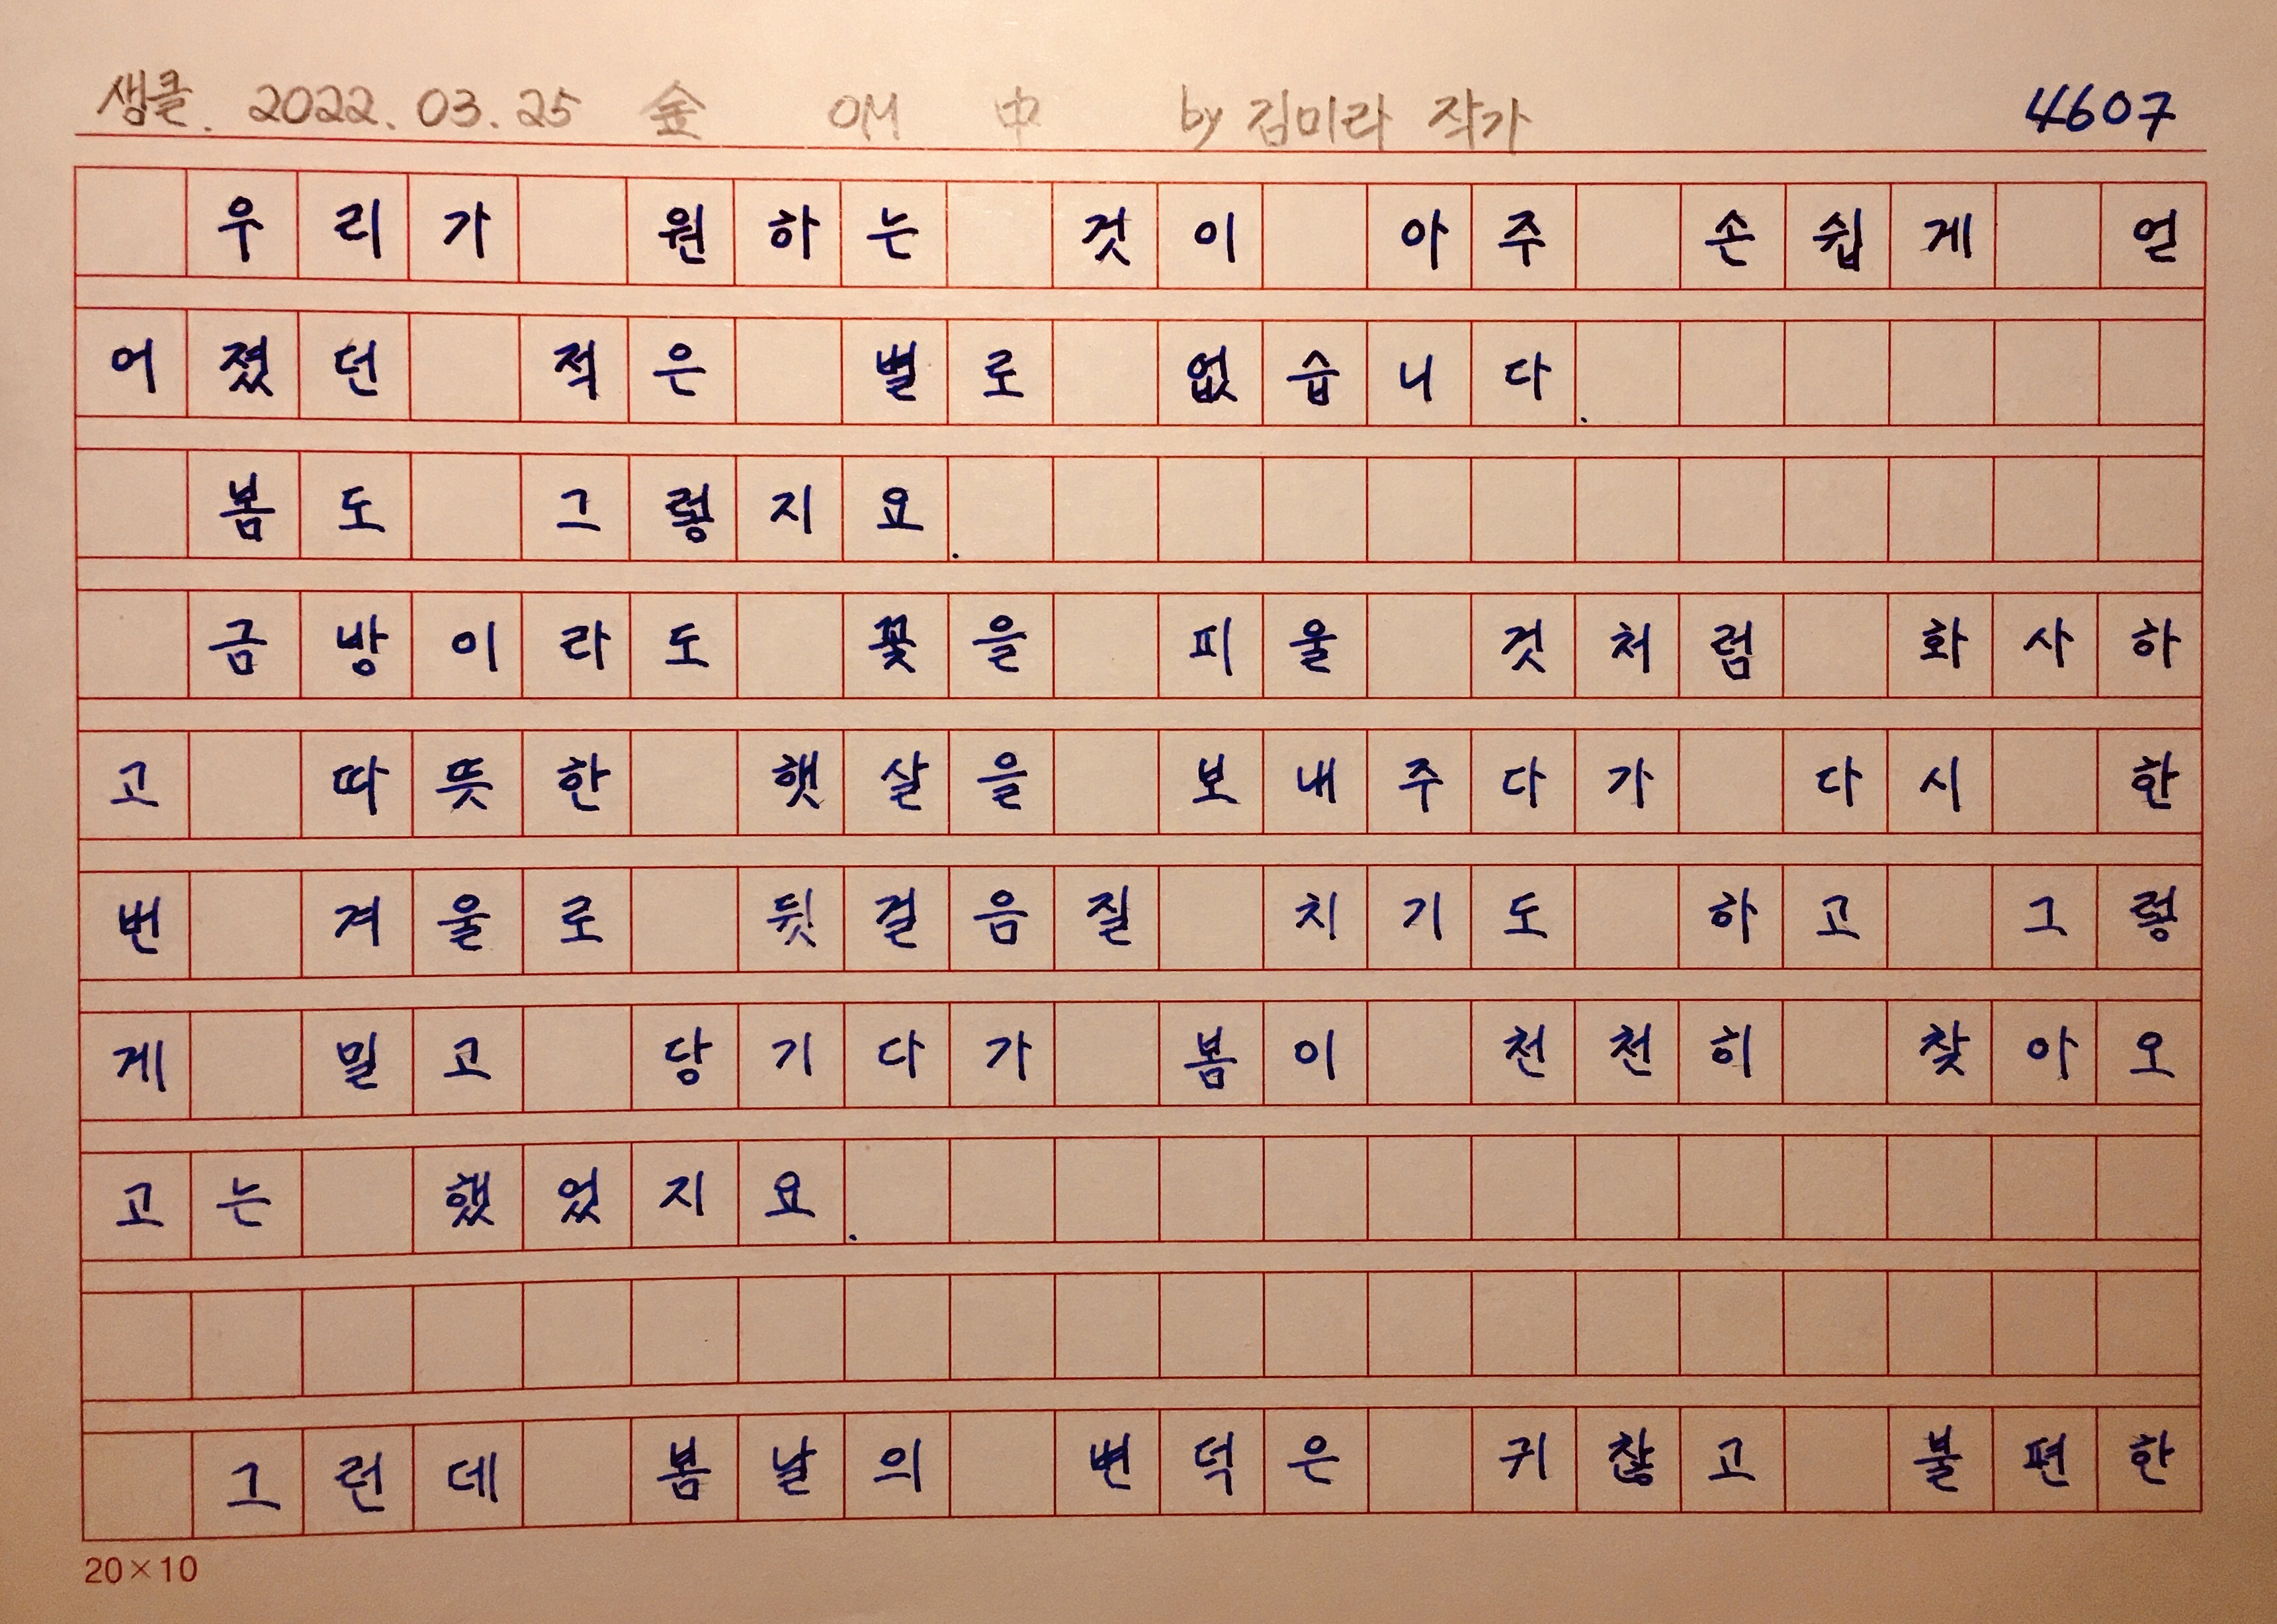 샘클. 2022. 03. 25 金 OM 中 by 김미라 작가 4607
우리가 원하는 것이 아주 손쉽게 얻
어졌던 적은 별로 없습니다.
봄도 그렇지요.
금방이라도 꽃을 피울 것처럼 화사하
고 따뜻한 햇살을 보내주다가 다시 한
번 겨울로 뒷걸음질 치기도 하고 그렇
게 밀고 당기다가 봄이 천천히 찾아오
고는 했었지요.
그런데 봄날의 변덕은 귀찮고 불편한
20×10